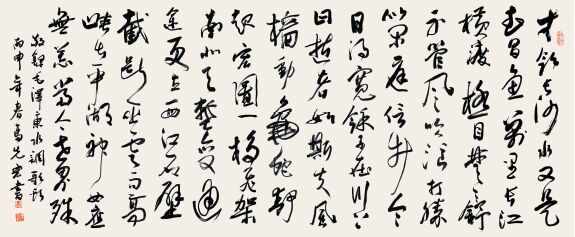 才饮长沙水又食
武昌鱼万里长江
横渡极目楚天舒
不管风吹浪打胜
似闲庭信步今
日得宽馀子在川上
曰逝者如斯夫风
樯动龟蛇静
起宏图一桥飞架
南北天堑变通
途更立西江石壁
截断巫山云雨高
峡出平湖神女应
無恙当惊世界殊
敬录毛澤東水調歌头
丙申年春 先 書